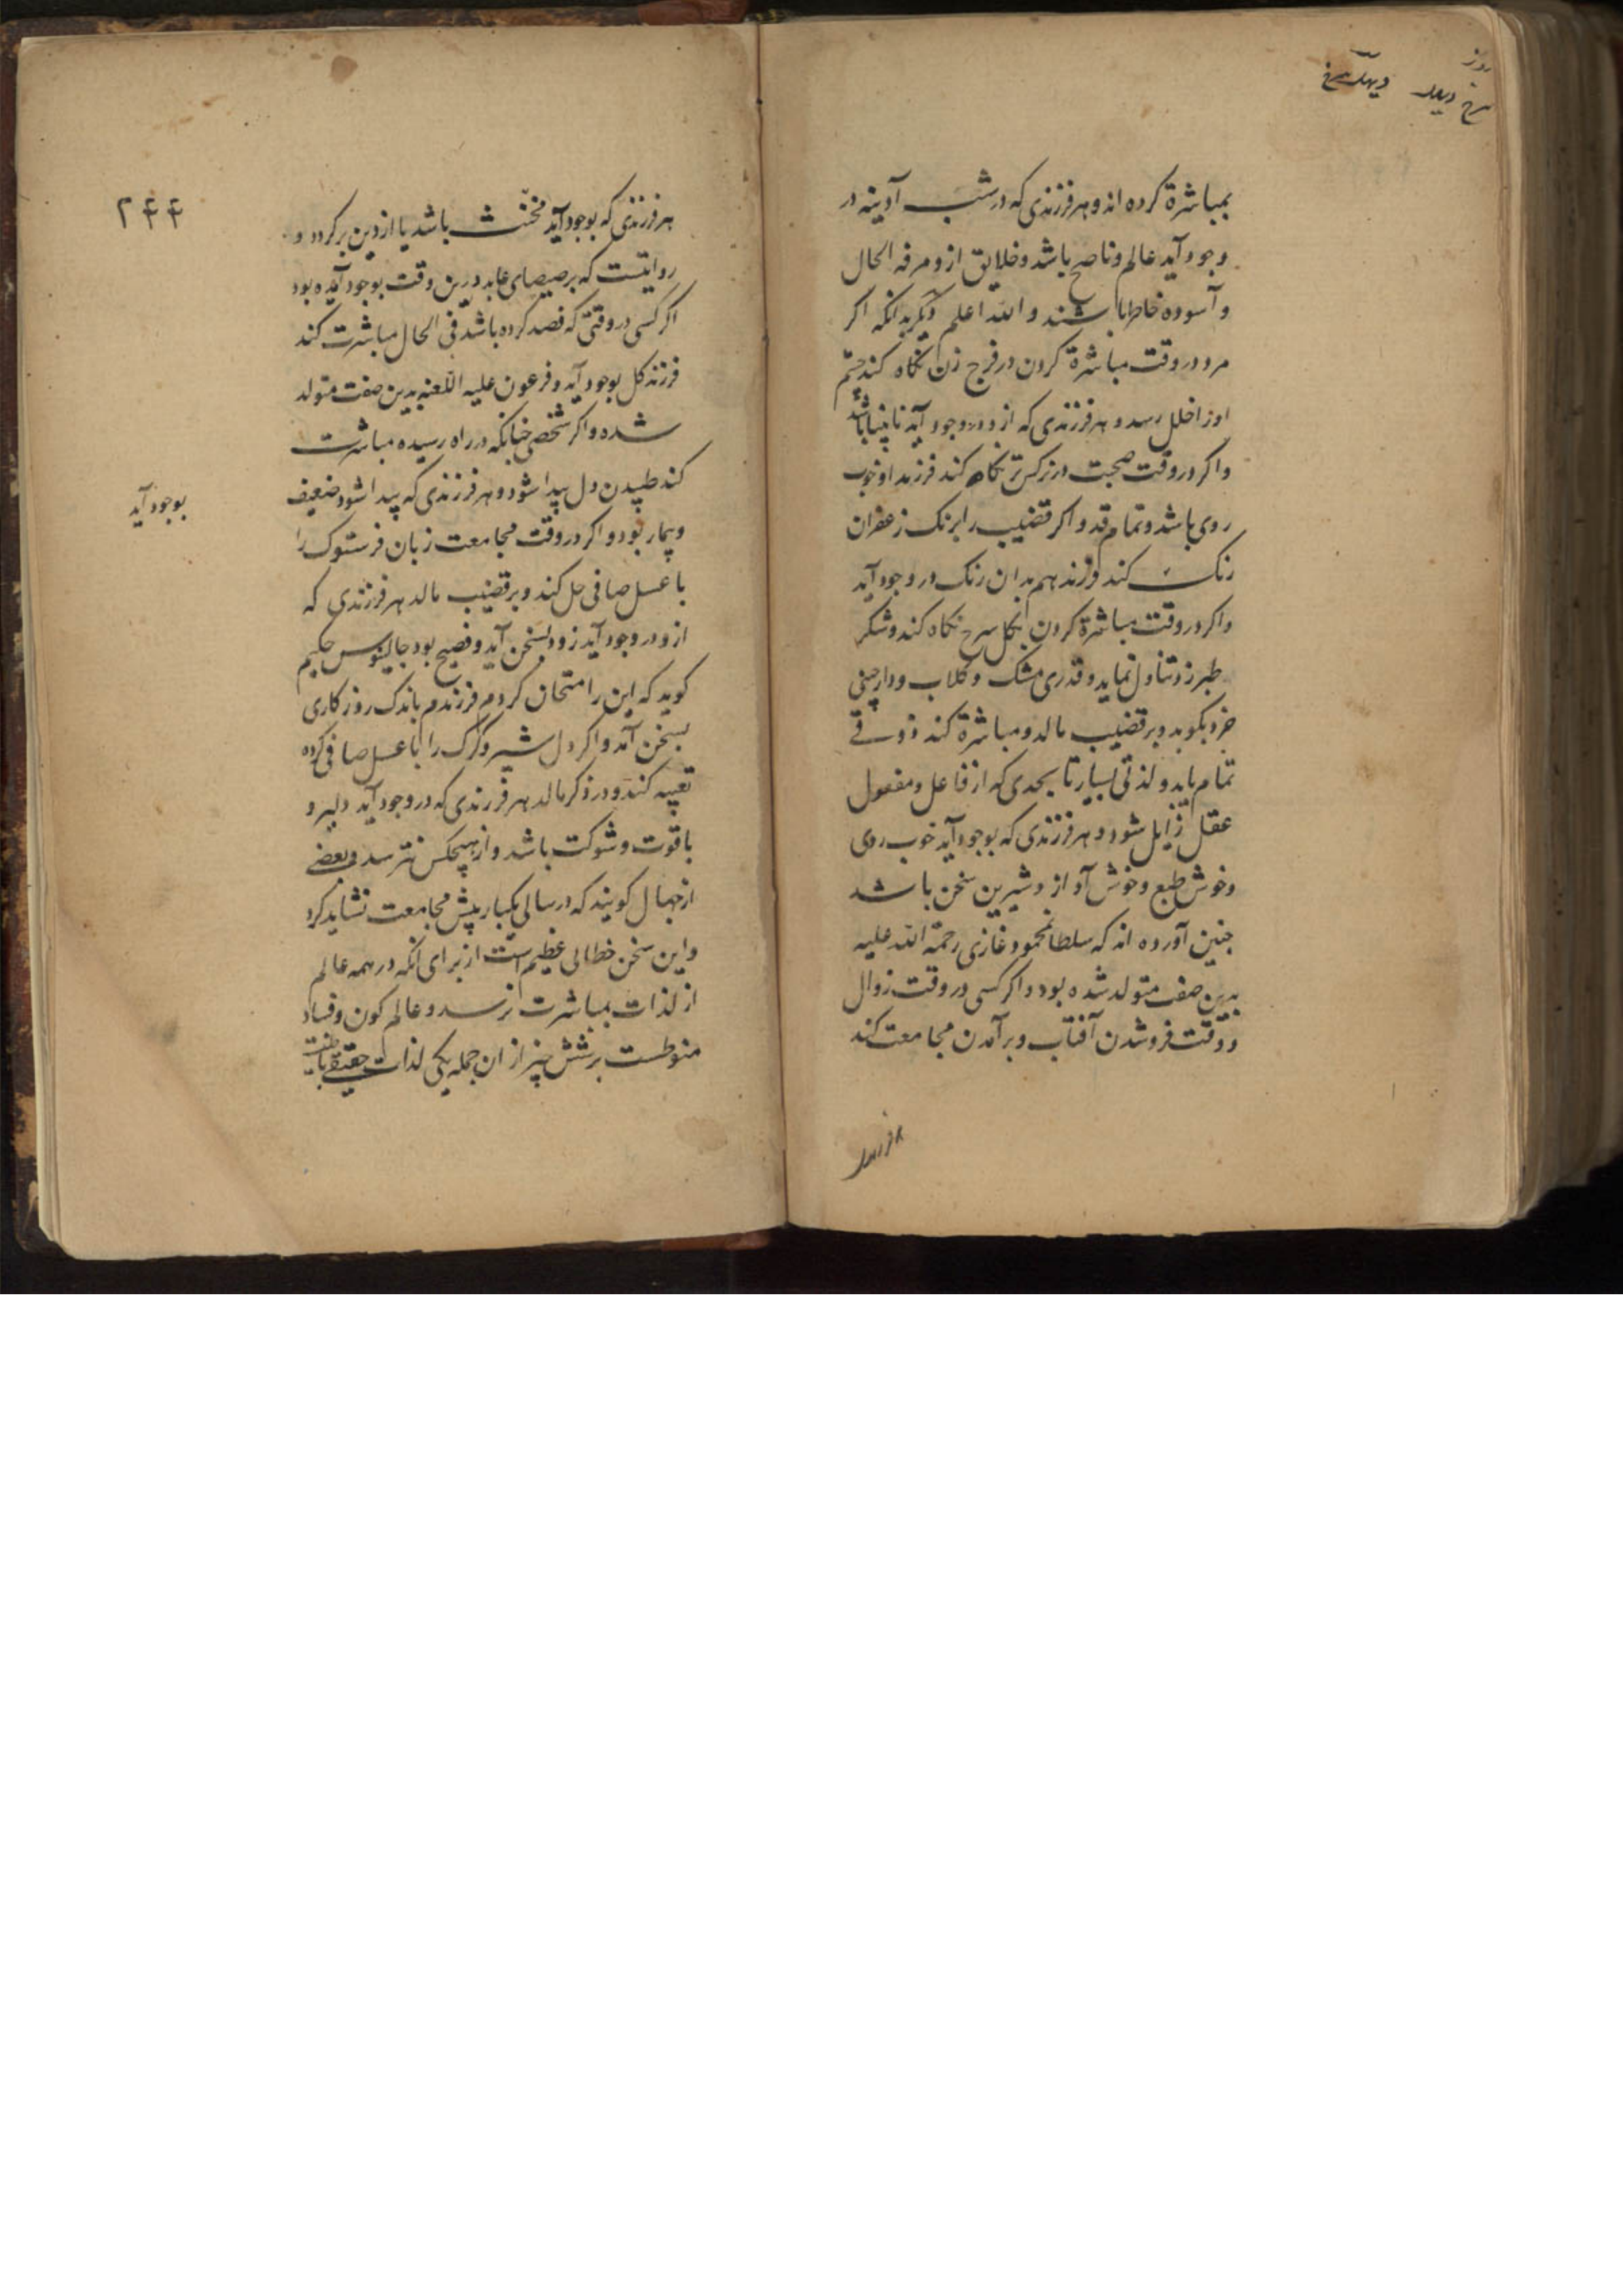 روز
سرخ
بمباشرة کرده اند و هر فرزندی که در شب آدینه در
وجود آید عالم و ناصح باشد و خلایق ازو مرفه الحال
و آسوده خاطر باشند و الله اعلم دیکر بدانکه اکر
مرد در وقت مباشرة کردن در فرج زن نکاه کند چشم
اورا خلل رسد و هر فرزندی که ازو در وجود آید نابینا باشد
و اکر در وقت صحبت در نرکس تر نکاه کند فرزند او خوب
روی باشد و تمام قد و اکر قضیب را برنک زعفران
رنک کند فرزند هم بدان رنک در وجود آید
و اکر در وقت مباشرة کردن بکل سرخ نکاه کند و شکر
طبرزد تناول نماید و قدری مشک و کلاب و دارچینی
خرد بکوبد و بر قضیب مالد و مباشرة کند ذوقی
تمام یابد و لذتی بسیار تا بحدی که از فاعل و مفعول
عقل زایل شود و هر فرزندی که بوجود آید خوب روی
و خوش طبع و خوش آواز و شیرین سخن باشد
جنین آورده اند که سلطان محمود غازی رحمة الله علیه
بدین صفت متولد شده بود و اکر کسی در وقت زوال
و وقت فروشدن آفتاب و برآمدن مجامعت کند
هر فرزندی
۲۴۴
هر فرزندی که بوجود آید مخنث باشد یا از دین برکردد و
روایتست که برصیصای عابد درین وقت بوجود آمده بود
اکر کسی در وقتی که فصد کرده باشد فی الحال مباشرت کند
فرزند کل بوجود آید و فرعون علیه اللعنه بدین صفت متولد
شده و اکر شخصی چنانکه در راه رسیده مباشرت
کند طپیدن دل پیدا شود و هر فرزندی که پیدا شود ضعیف
بوجود آید
و بیمار بود و اکر در وقت مجامعت زبان فرستوک را
با عسل صافی حل کند و بر قضیب مالد هر فرزندی که
ازو در وجود آید زود بسخن آید و فصیح بود جالینوس حکیم
کوید که این را امتحان کردم فرزندم باندک روزکاری
بسخن آمد و اکر دل شیر و کرک را با عسل صافی کرده
تعبیه کند و در ذکر مالد هر فرزندی که در وجود آید دلیر و
با قوت و شوکت باشد و از هیچکس نترسد و بعضی
از جهال کویند که در سالی یکبار بیش مجامعت نشاید کرد
و این سخن خطائی عظیم است از برای انکه در همه عالم
از لذات بمباشرت نرسد و عالم کون و فساد
منوطست بر شش چیز از ان جمله یکی لذات حقیقی